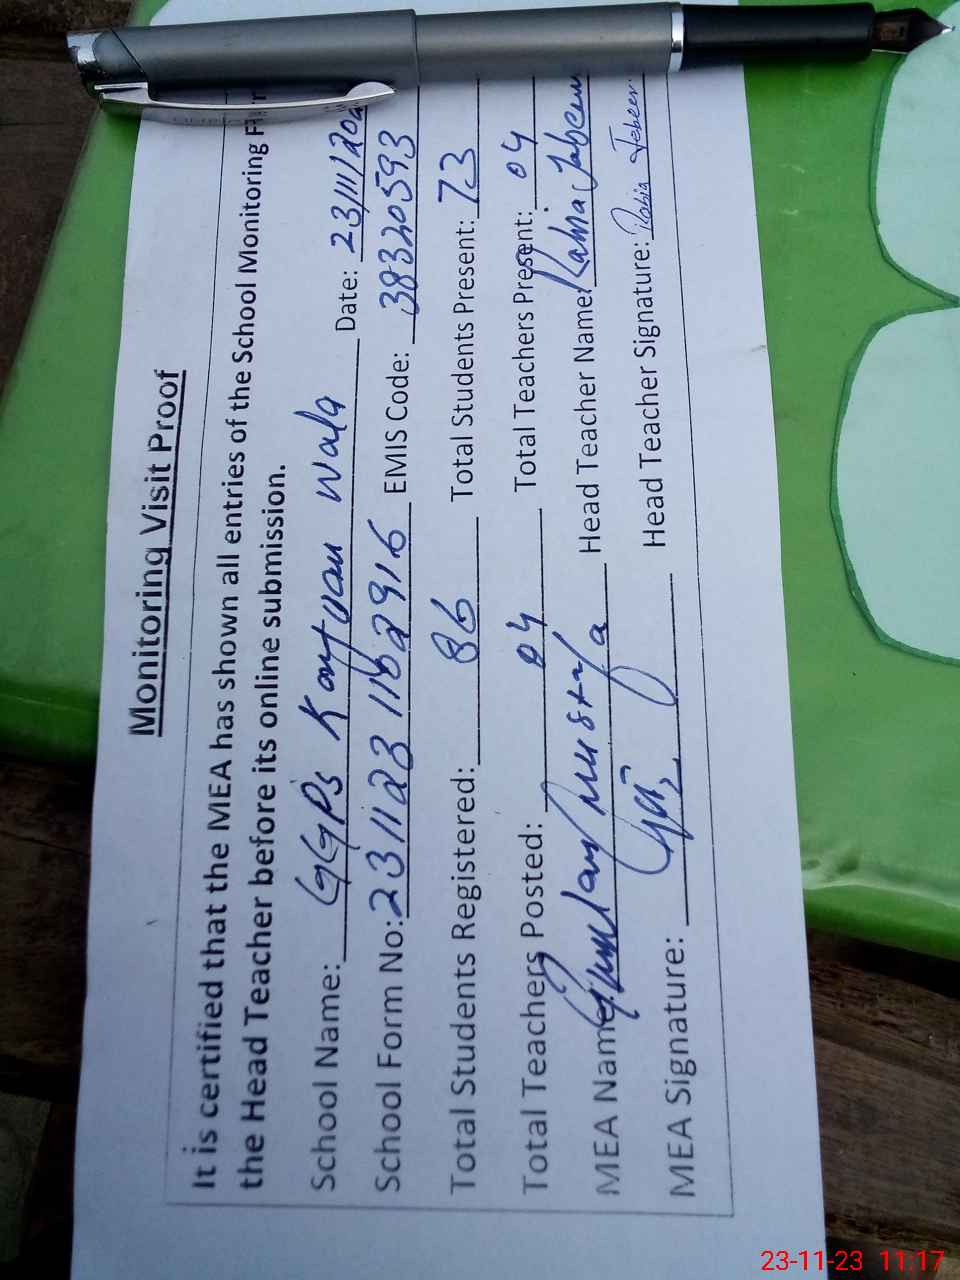 Monitoring Visit Proof
It is certified that the MEA has shown all entries of the School Monitoring
the Head Teacher before its online submission.
School Name: GGPS Wala Date: 23/11/202
School Form No: EMIS Code: 38320593
Total Students Registered: 86 Total Students Present: 73
Total Teachers Posted: 04 Total Teachers Present: 04
MEA Name: Ghulam Mustafa Head Teacher Name: Rabia Jabeen
MEA Signature: Head Teacher Signature: Rabia Jebeen
23-11-23 11:17